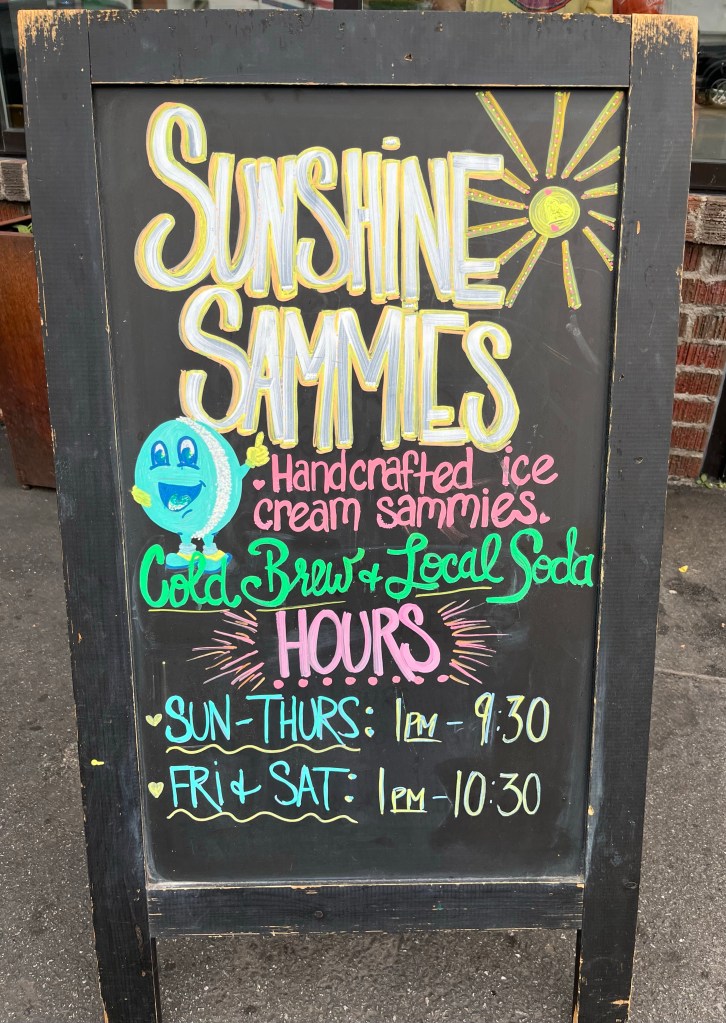 SUNSHINE
SAMMIES
Handcrafted ice
cream sammies.
Cold Brew & Local Soda
HOURS
SUN-THURS: 1PM-9:30
FRI & SAT: 1PM-10:30